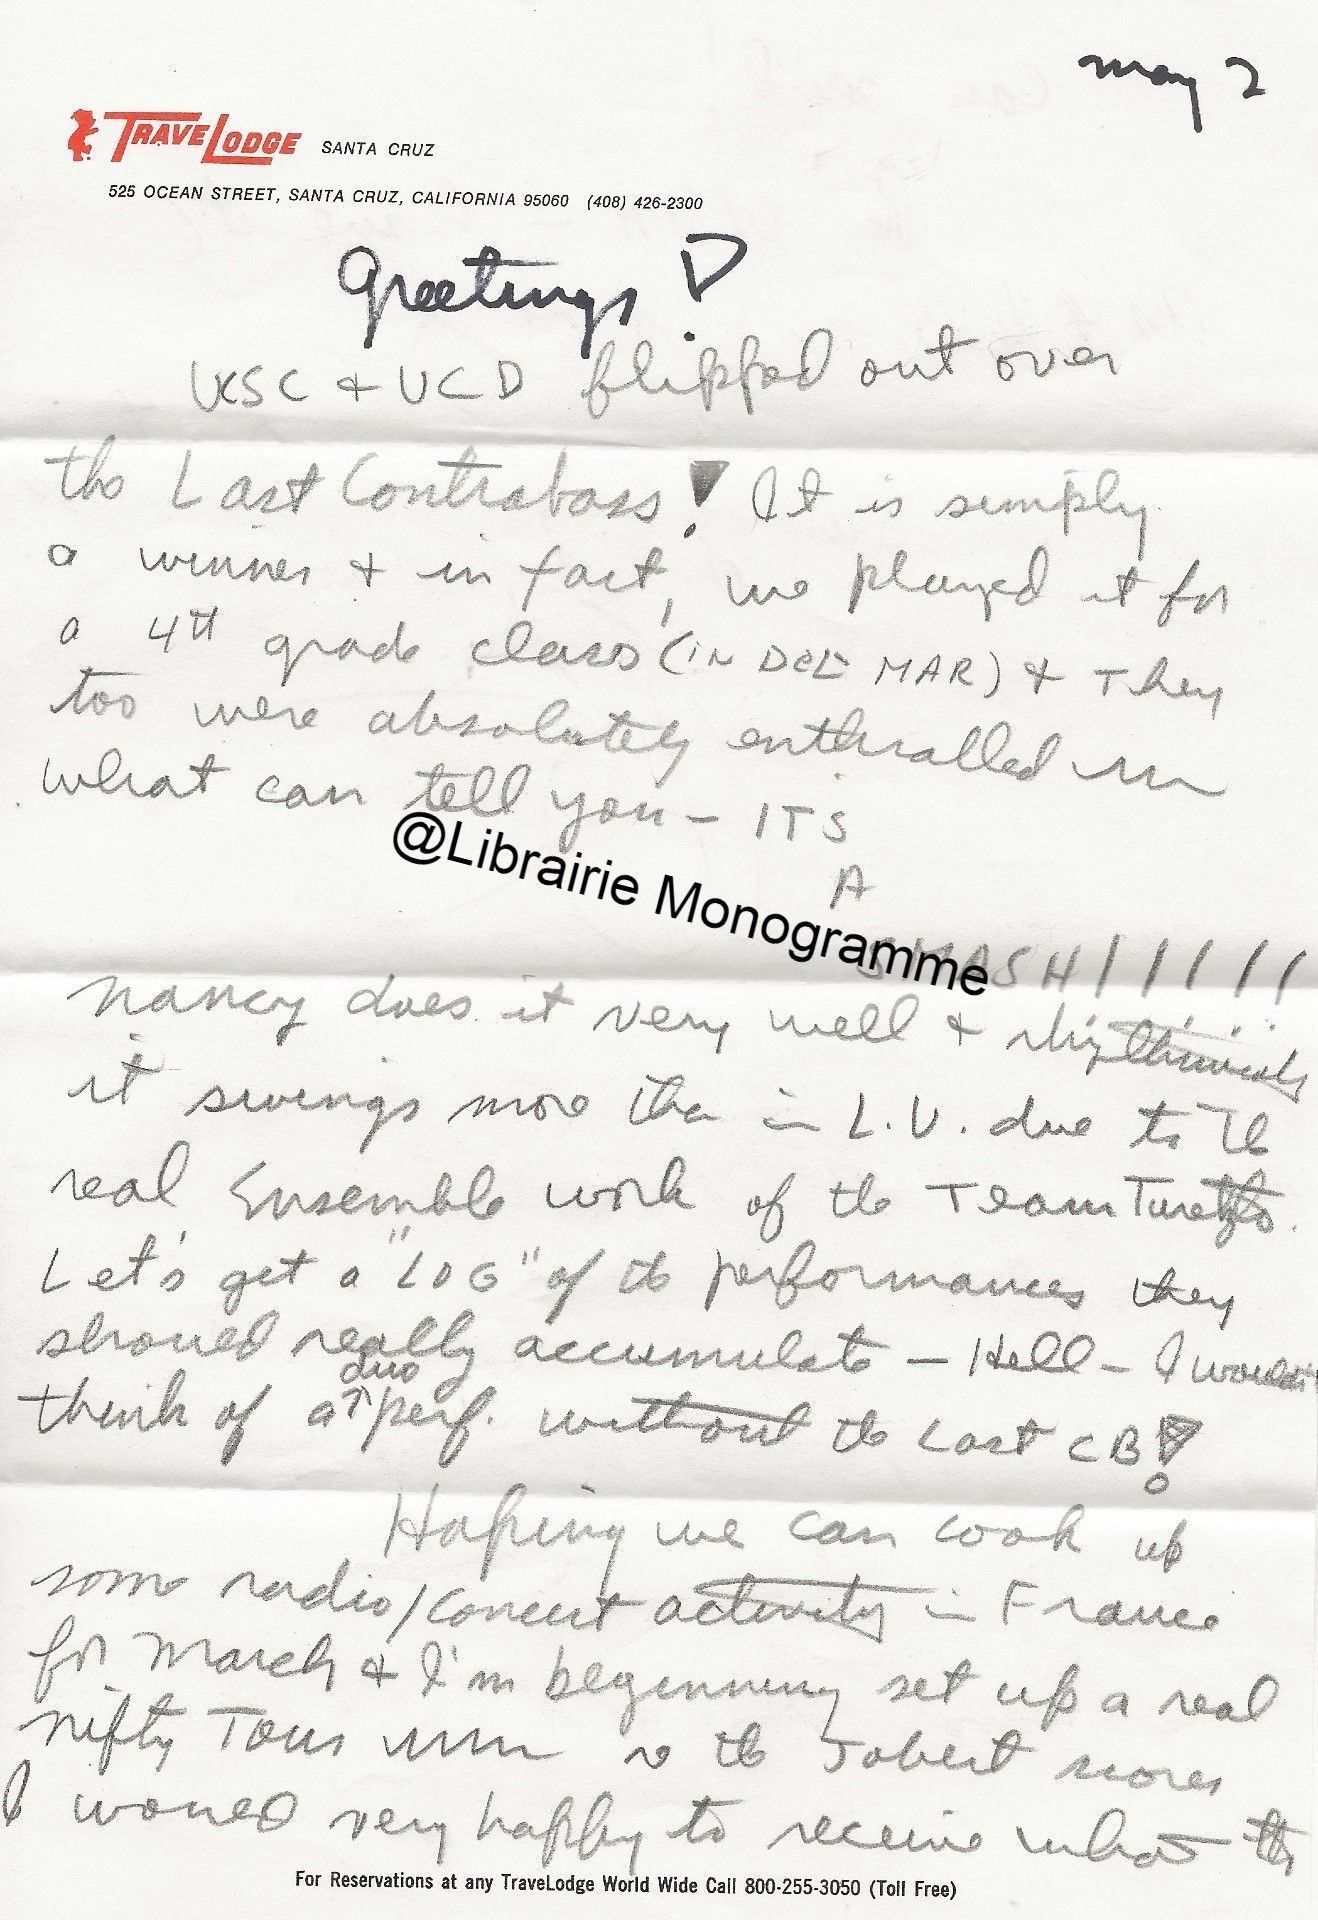 may 2
TRAVELODGE SANTA CRUZ
525 OCEAN STREET, SANTA CRUZ, CALIFORNIA 95060 (408) 426-2300
Greetings!
UCSC + UCD flipped out over
the Last Contrabass! It is simply
a winner + in fact, we played it for
a 4th grade class (IN DEL MAR) + They
too were absolutely enthralled
what can tell you - ITS
A
@Librairie Monogramme
SMASH!!!!!!
Nancy does it very well + rhythmically
it swings more than in L.V. due to the
real Ensemble work of the Team Turetzko.
Let's get a "LOG" of the performances they
should really accumulate - Hell - I wouldn't
think of a duo perf. without the Last CB!
Hoping we can cook up
some radio/concert activity in France
for March + I'm beginning set up a real
nifty Tour the Jobert scores
I would very happy to receive what the
For Reservations at any TraveLodge World Wide Call 800-255-3050 (Toll Free)